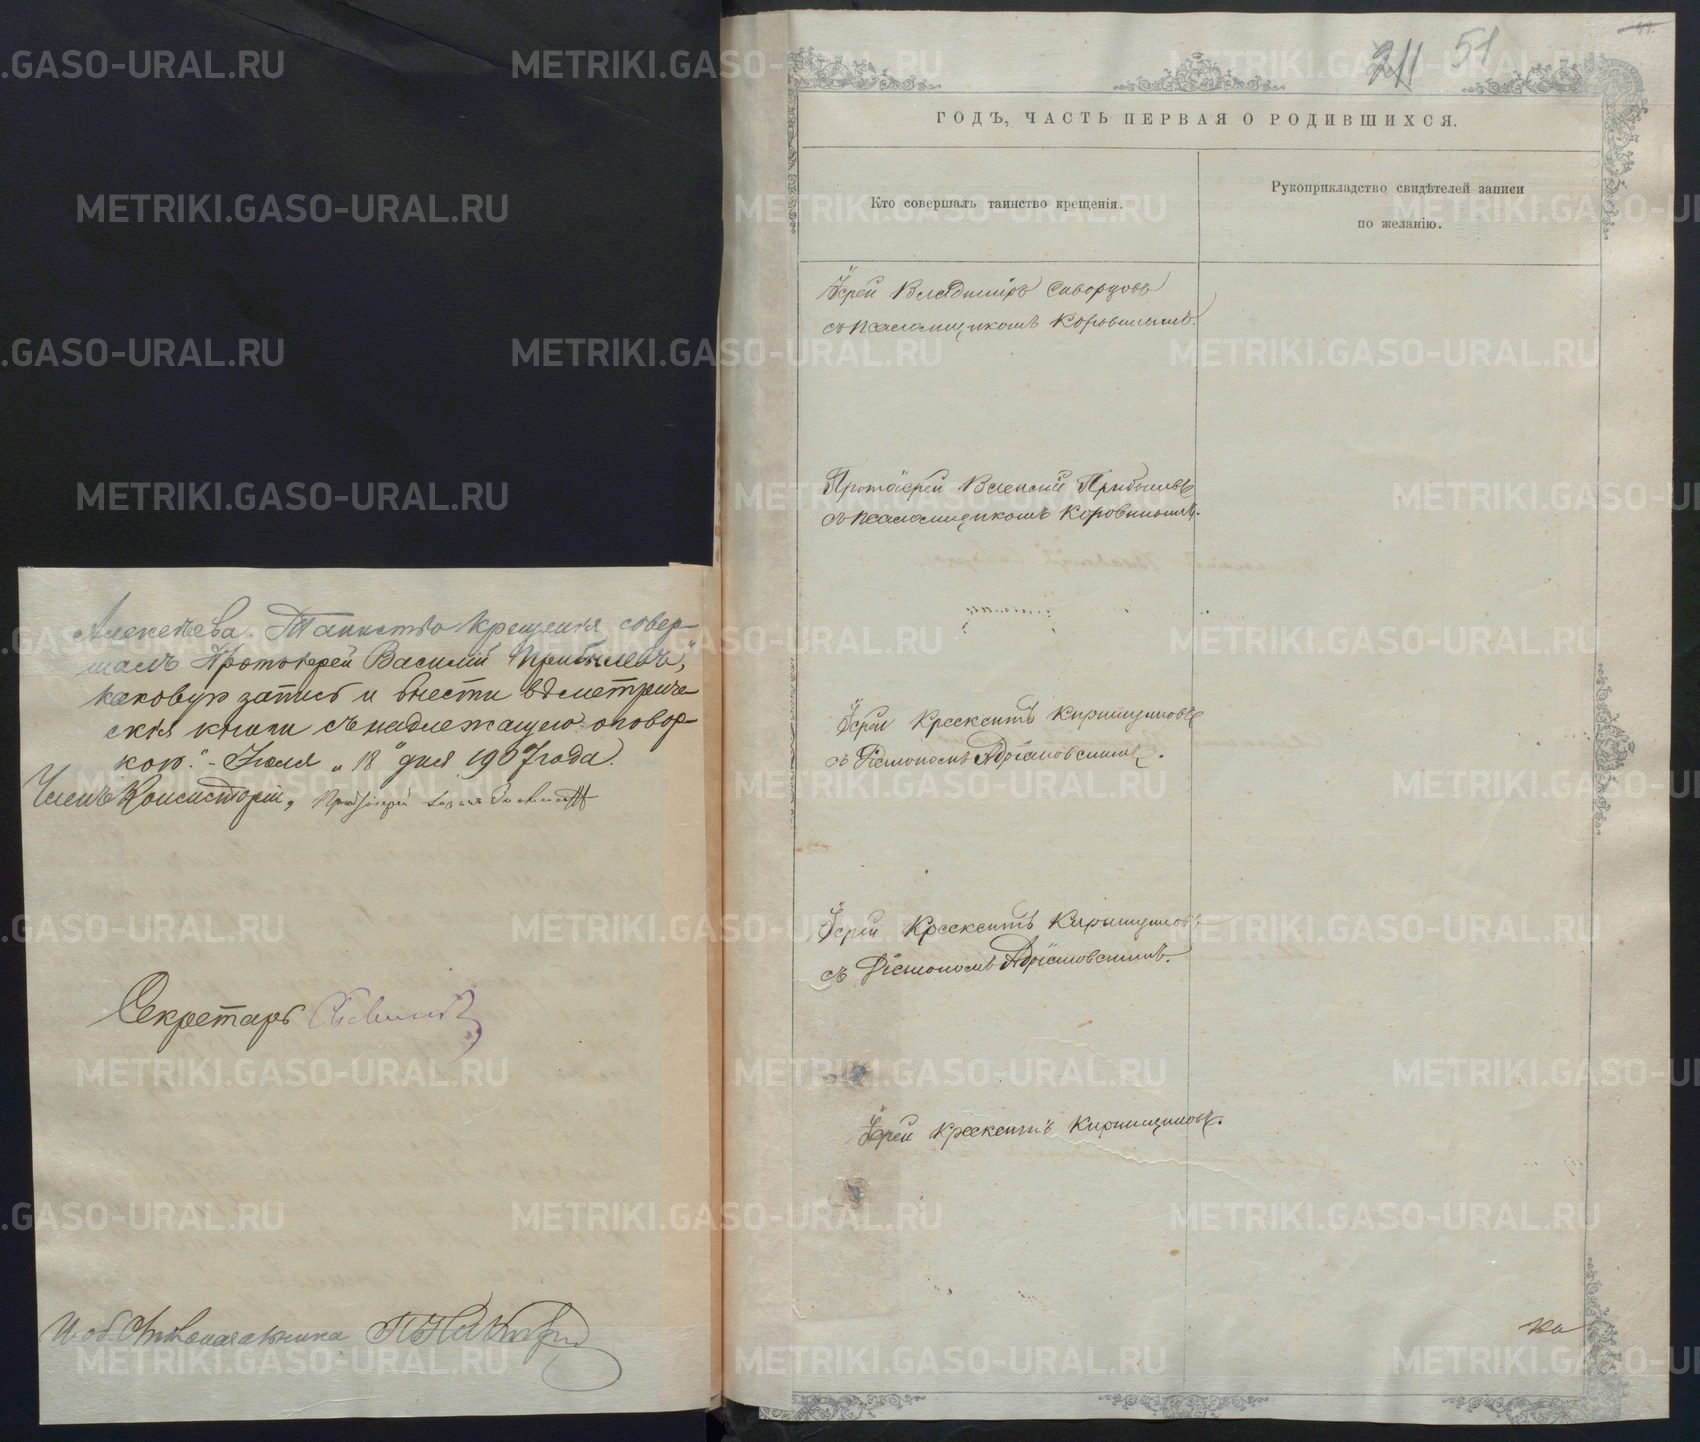 Алексѣева. Таинство крещенія совер-
шалъ Протоіерей Василій Прибылевъ",
каковую запись и внести въ метриче-
скія книги съ надлежащею оговор-
кою."- Іюля „18" дня 1907 года.
Членъ Консисторіи, Протоіерей
Секретарь
И. об. Столоначальника
211 51
ГОДЪ, ЧАСТЬ ПЕРВАЯ О РОДИВШИХСЯ.
Кто совершалъ таинство крещенія.
Рукоприкладство свидѣтелей записи
по желанію.
Іерей Владиміръ Скворцовъ
съ псаломщикомъ Коровинымъ.
Протоіерей Василій Прибылевъ
съ псаломщикомъ Коровинымъ.
Іерей Крескентъ Кирпищиковъ
съ Діакономъ Адріановскимъ.
Іерей Крескентъ Кирпищиковъ
съ Діакономъ Адріановскимъ.
Іерей Крескентъ Кирпищиковъ.
METRIKI.GASO-URAL.RU